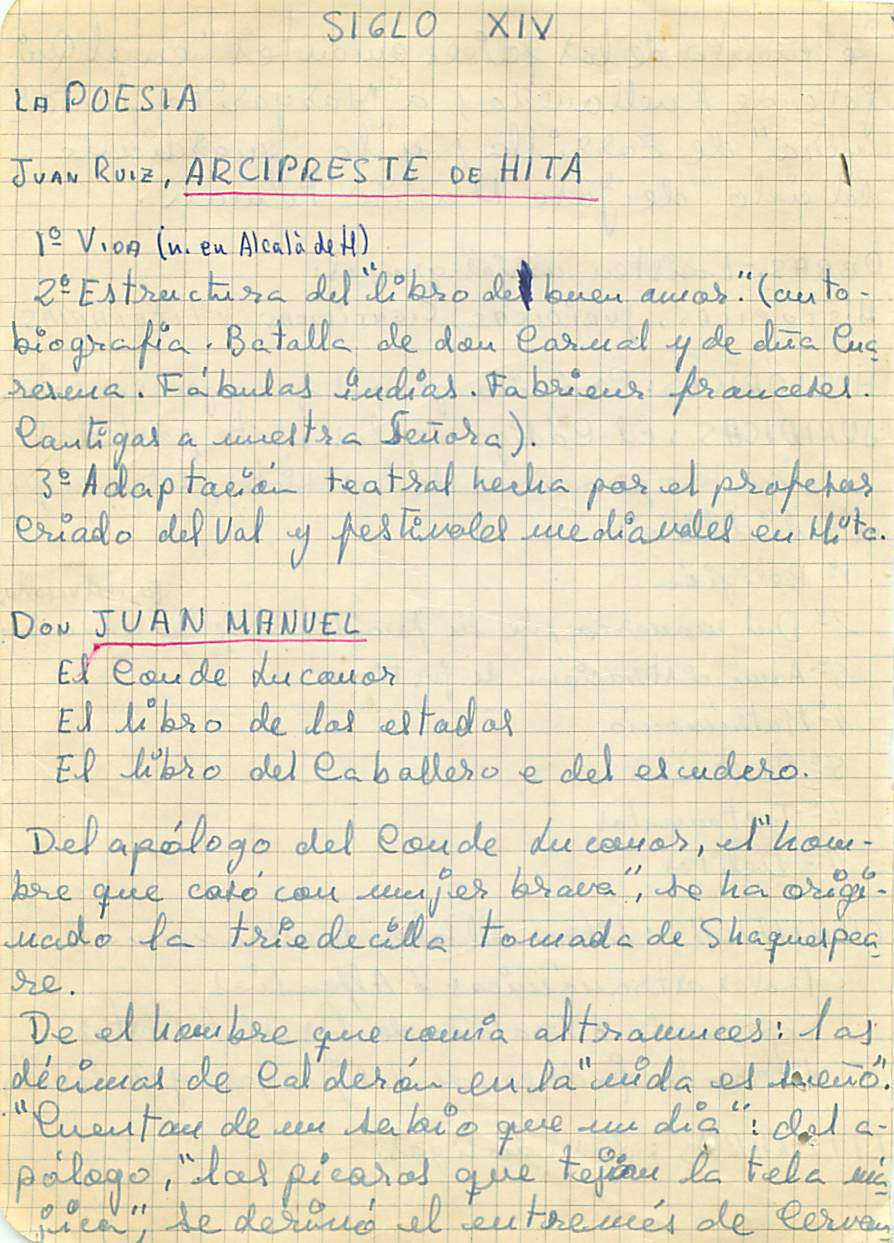 SIGLO XIV
LA POESIA
JUAN RUIZ, ARCIPRESTE DE HITA
1º VIDA (n. en Alcalà de H)
2º Estructura del "libro de buen amor". (auto-
biografia. Batalla de don Carnal y de dña Cua
resma. Fábulas indias. Fabrieus franceses.
Cantigas a nuestra Señora).
3º Adaptación teatral hecha por el profesor
Criado del Val y festivales medievales en Hita.
DON JUAN MANUEL
El Conde Lucanor
El libro de los estados
El libro del Caballero e del escudero.
Del apólogo del Conde Lucanor, el "hom-
bre que casó con mujer brava", se ha origi-
nado la
tomada de Shaquespea
re.
De el hombre que comía altramuces: las
décimas de Calderón en la "vida es sueño".
"Cuentan de un sabio que un dia": del a-
pólogo, "los picaros que tejian la tela má
jica", se derivó el entremés de Cervan